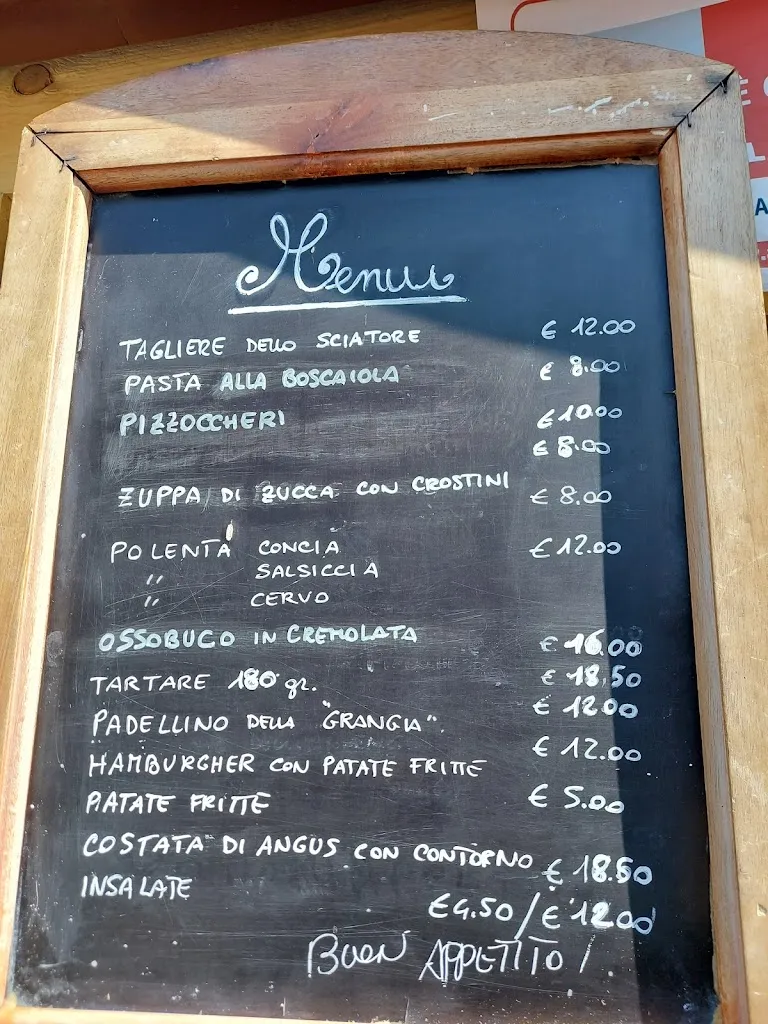 Menu
TAGLIERE DELLO SCIATORE € 12.00
PASTA ALLA BOSCAIOLA € 8.00
PIZZOCCHERI € 10.00
€ 8.00
ZUPPA DI ZUCCA CON CROSTINI € 8.00
POLENTA CONCIA € 12.00
" SALSICCIA
" CERVO
OSSOBUCO IN CREMOLATA € 16.00
TARTARE 180 gr. € 18.50
PADELLINO DELLA "GRANGIA". € 12.00
HAMBURGHER CON PATATE FRITTE € 12.00
PATATE FRITTE € 5.00
COSTATA DI ANGUS CON CONTORNO € 18.50
INSALATE €4.50/€12.00
BUON APPETITO!